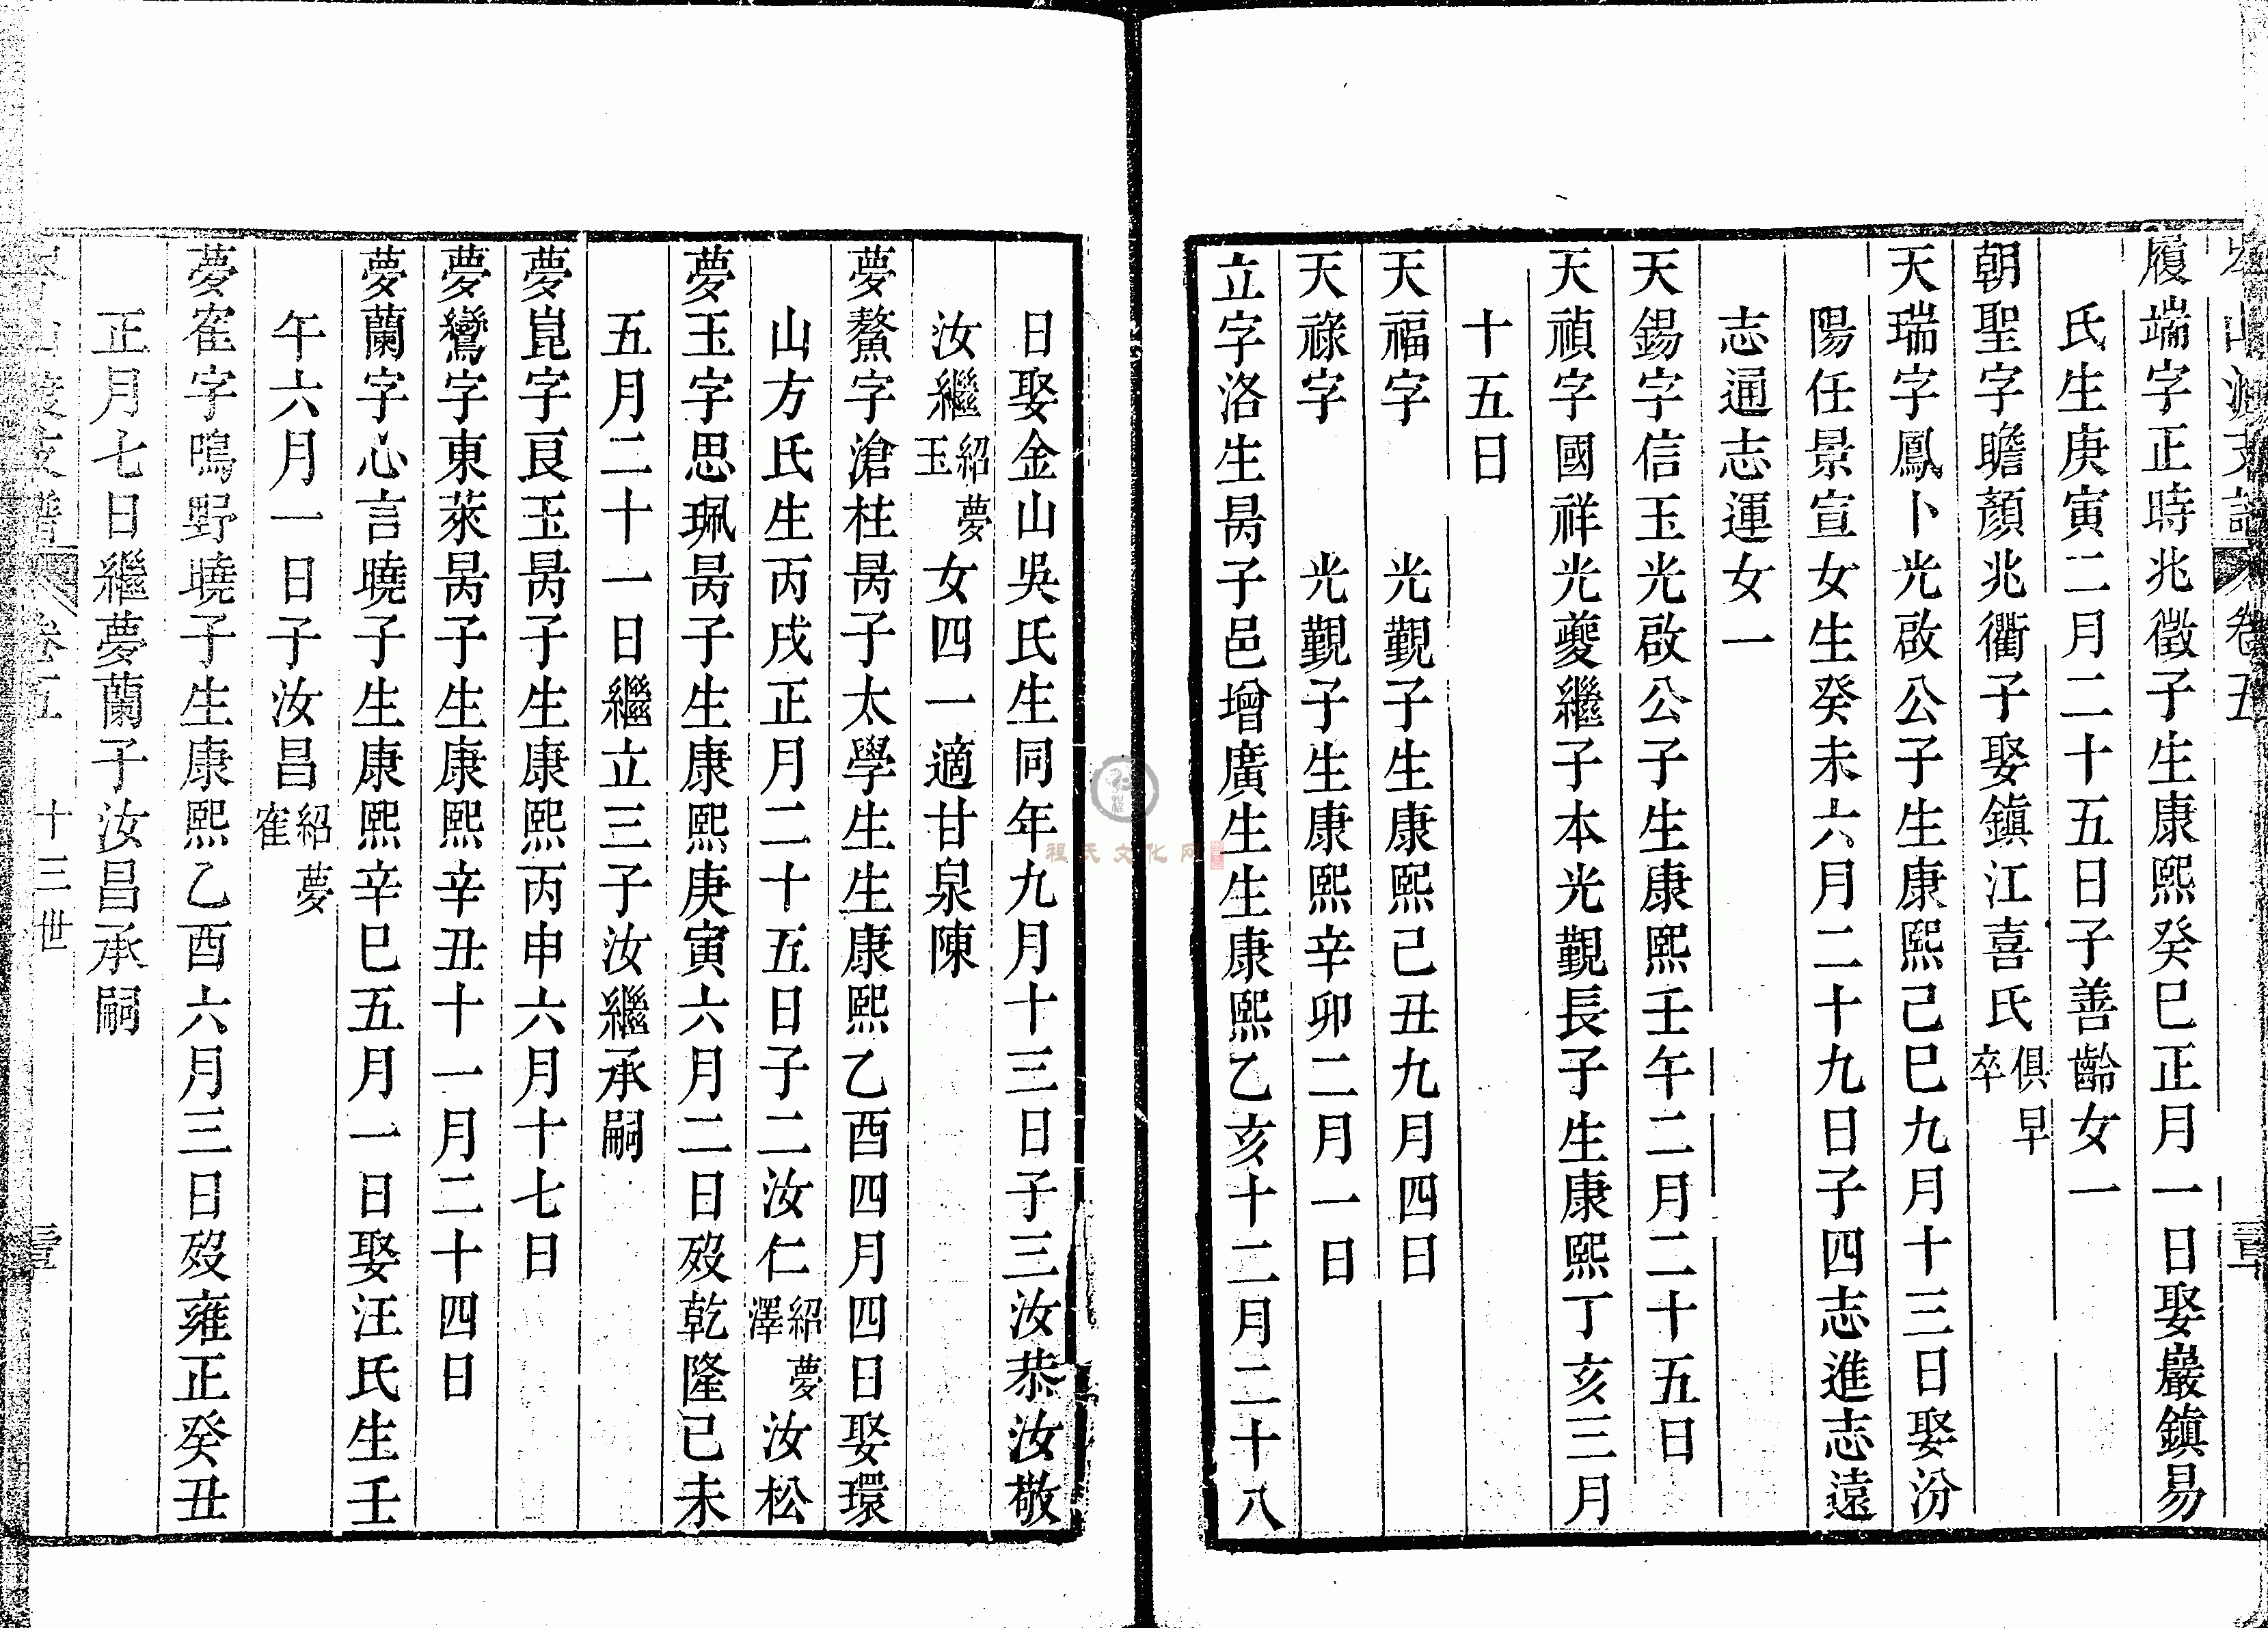 履端字正時兆徵子生康熙癸巳正月一日娶巖鎮易
氏生庚寅二月二十五日子善齡女一
朝聖字瞻顏兆衢子娶鎮江喜氏俱早卒
天瑞字鳳卜光啟公子生康熙己巳九月十三日娶汾
陽任景宣女生癸未六月二十九日子四志進志遠
志通志運女一
天錫字信玉光啟公子生康熙壬午二月二十五日
天禎字國祥光夔繼子本光觀長子生康熙丁亥三月
十五日
天福字 光觀子生康熙己丑九月四日
天祿字 光觀子生康熙辛卯二月一日
立字洛生昺子邑增廣生生康熙乙亥十二月二十八
日娶金山吳氏生同年九月十三日子三汝恭汝敬
汝繼紹夢玉女四一適甘泉陳
夢鰲字滄柱昺子太學生生康熙乙酉四月四日娶環
山方氏生丙戌正月二十五日子二汝仁紹夢澤汝松
夢玉字思珮昺子生康熙庚寅六月二日歿乾隆己未
五月二十一日繼立三子汝繼承嗣
夢崑字艮玉昺子生康熙丙申六月十七日
夢鸞字東萊昺子生康熙辛丑十一月二十四日
夢蘭字心言曉子生康熙辛巳五月一日娶汪氏生壬
午六月一日子汝昌紹夢寉
夢寉字鳴野曉子生康熙乙酉六月三日歿雍正癸丑
正月七日繼夢蘭子汝昌承嗣
卷五 十三世
程氏文化网